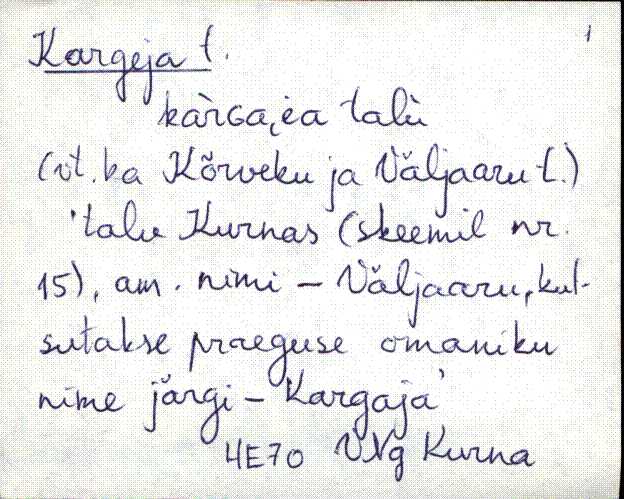 1
Kargeja t.
kàrGa,ea talù
(vt. ka Kõrveku ja Väljaaru t.)
'talu Kurnas (skeemil nr.
15), am. nimi – Väljaaru, kut-
sutakse praeguse omaniku
nime järgi – Kargaja'
4E70 VNg Kurna